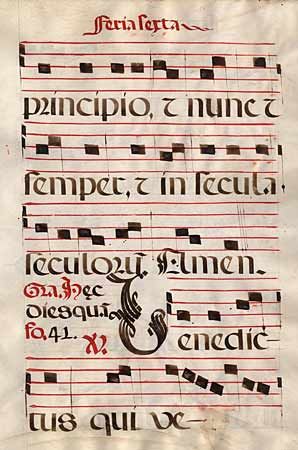 Feria sexta
principio, & nunc &
semper, & in secula
seculorũ. Amen.
Gra. Hęc
dies quã
fo, 41. ℣.
Benedic-
tus qui ve-